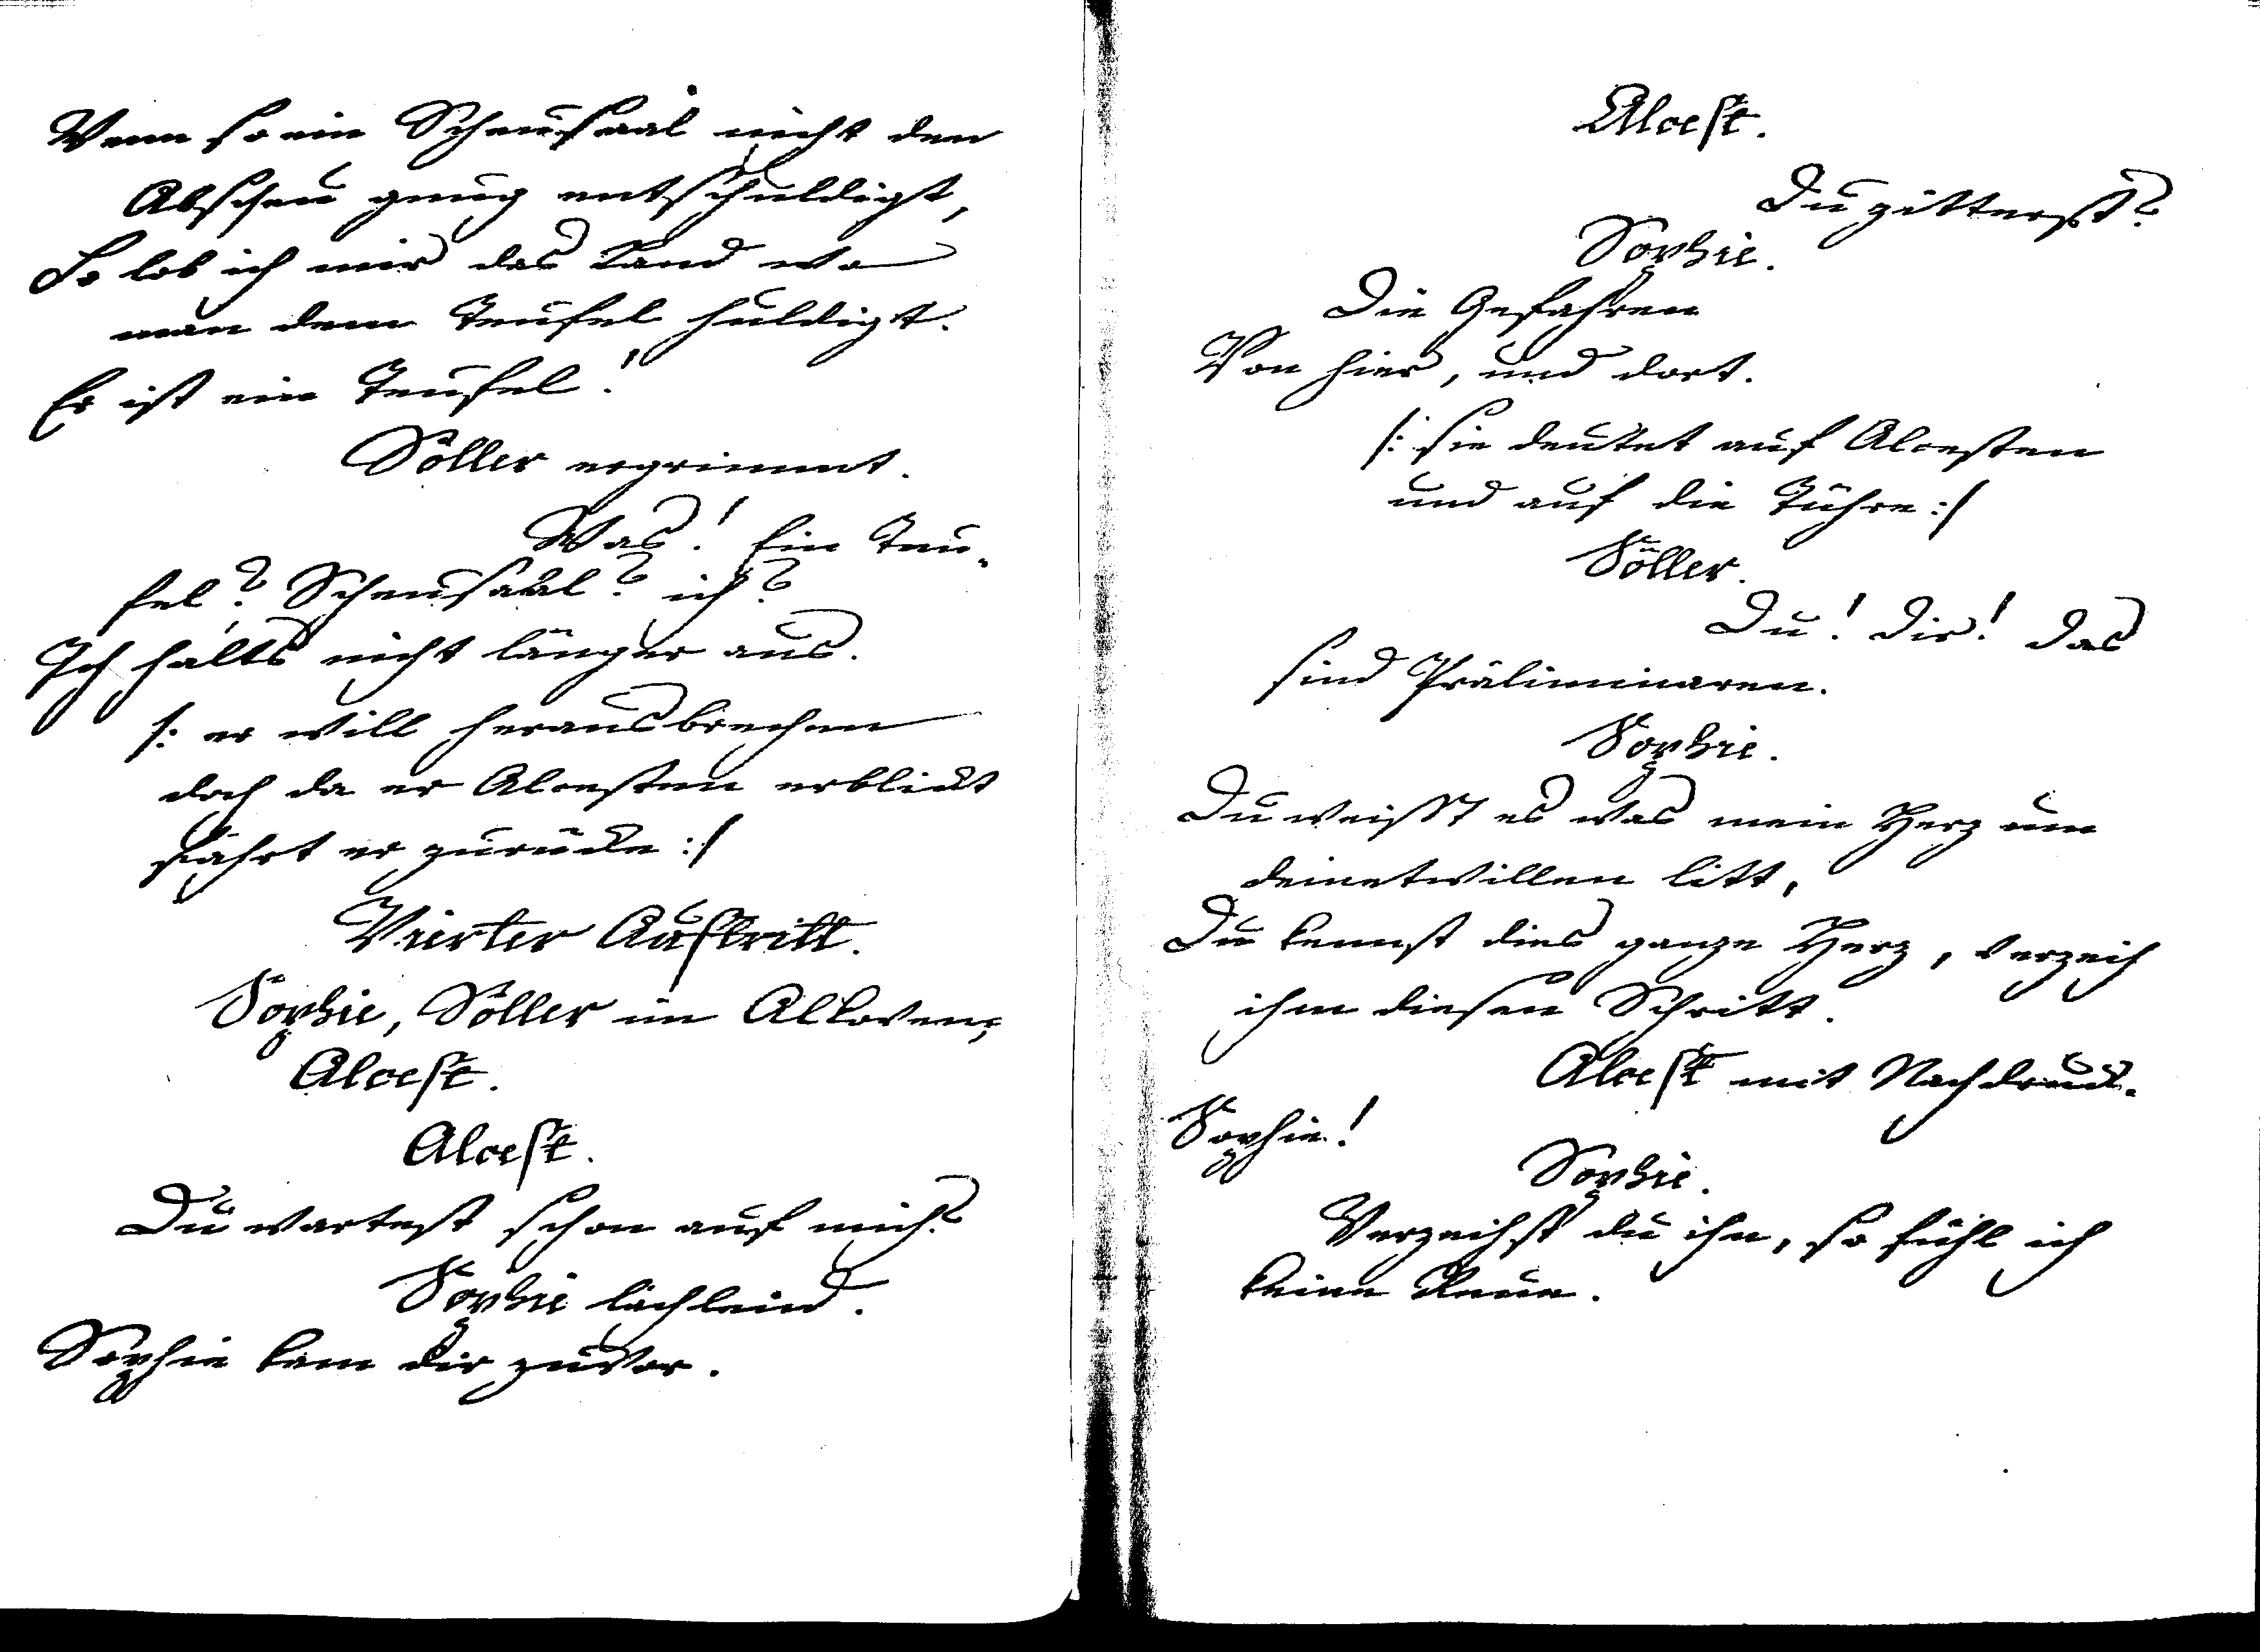 Wenn so ein Scheusaal nicht den
Abscheu gnug entschuldigt,
So lob ich mir das Land wo
man dem Teufel huldigt.
Er ist ein Teufel!
Söller ergrimmt.
Was! Ein Teu-
fel? Scheusaal? ich?
Ich halts nicht länger aus.
/: er will herausbrechen
doch da er Alcesten erblickt
fährt er zurücke :/
Vierter Auftritt.
Sophie, Söller im Alkoven,
Alcest.
Alcest.
Du wartest schon auf mich?
Sophie lächlend.
Sophie kam dir zuvor.
Alcest.
Du zitterst?
Sophie.
Die Gefahren
Von hier, und dort.
/: sie deutet auf Alcesten
und auf die Tühre :/
Söller.
Du! dir! das
sind Präliminaren.
Sophie.
Du weißt es was mein Herz um
deinetwillen litt,
Du kennst dies ganze Herz, verzeih
ihm diesen Schritt.
Alcest mit Nachdruck.
Sophie!
Sophie.
Verzeihst du ihn, so fühl ich
keine Reue.